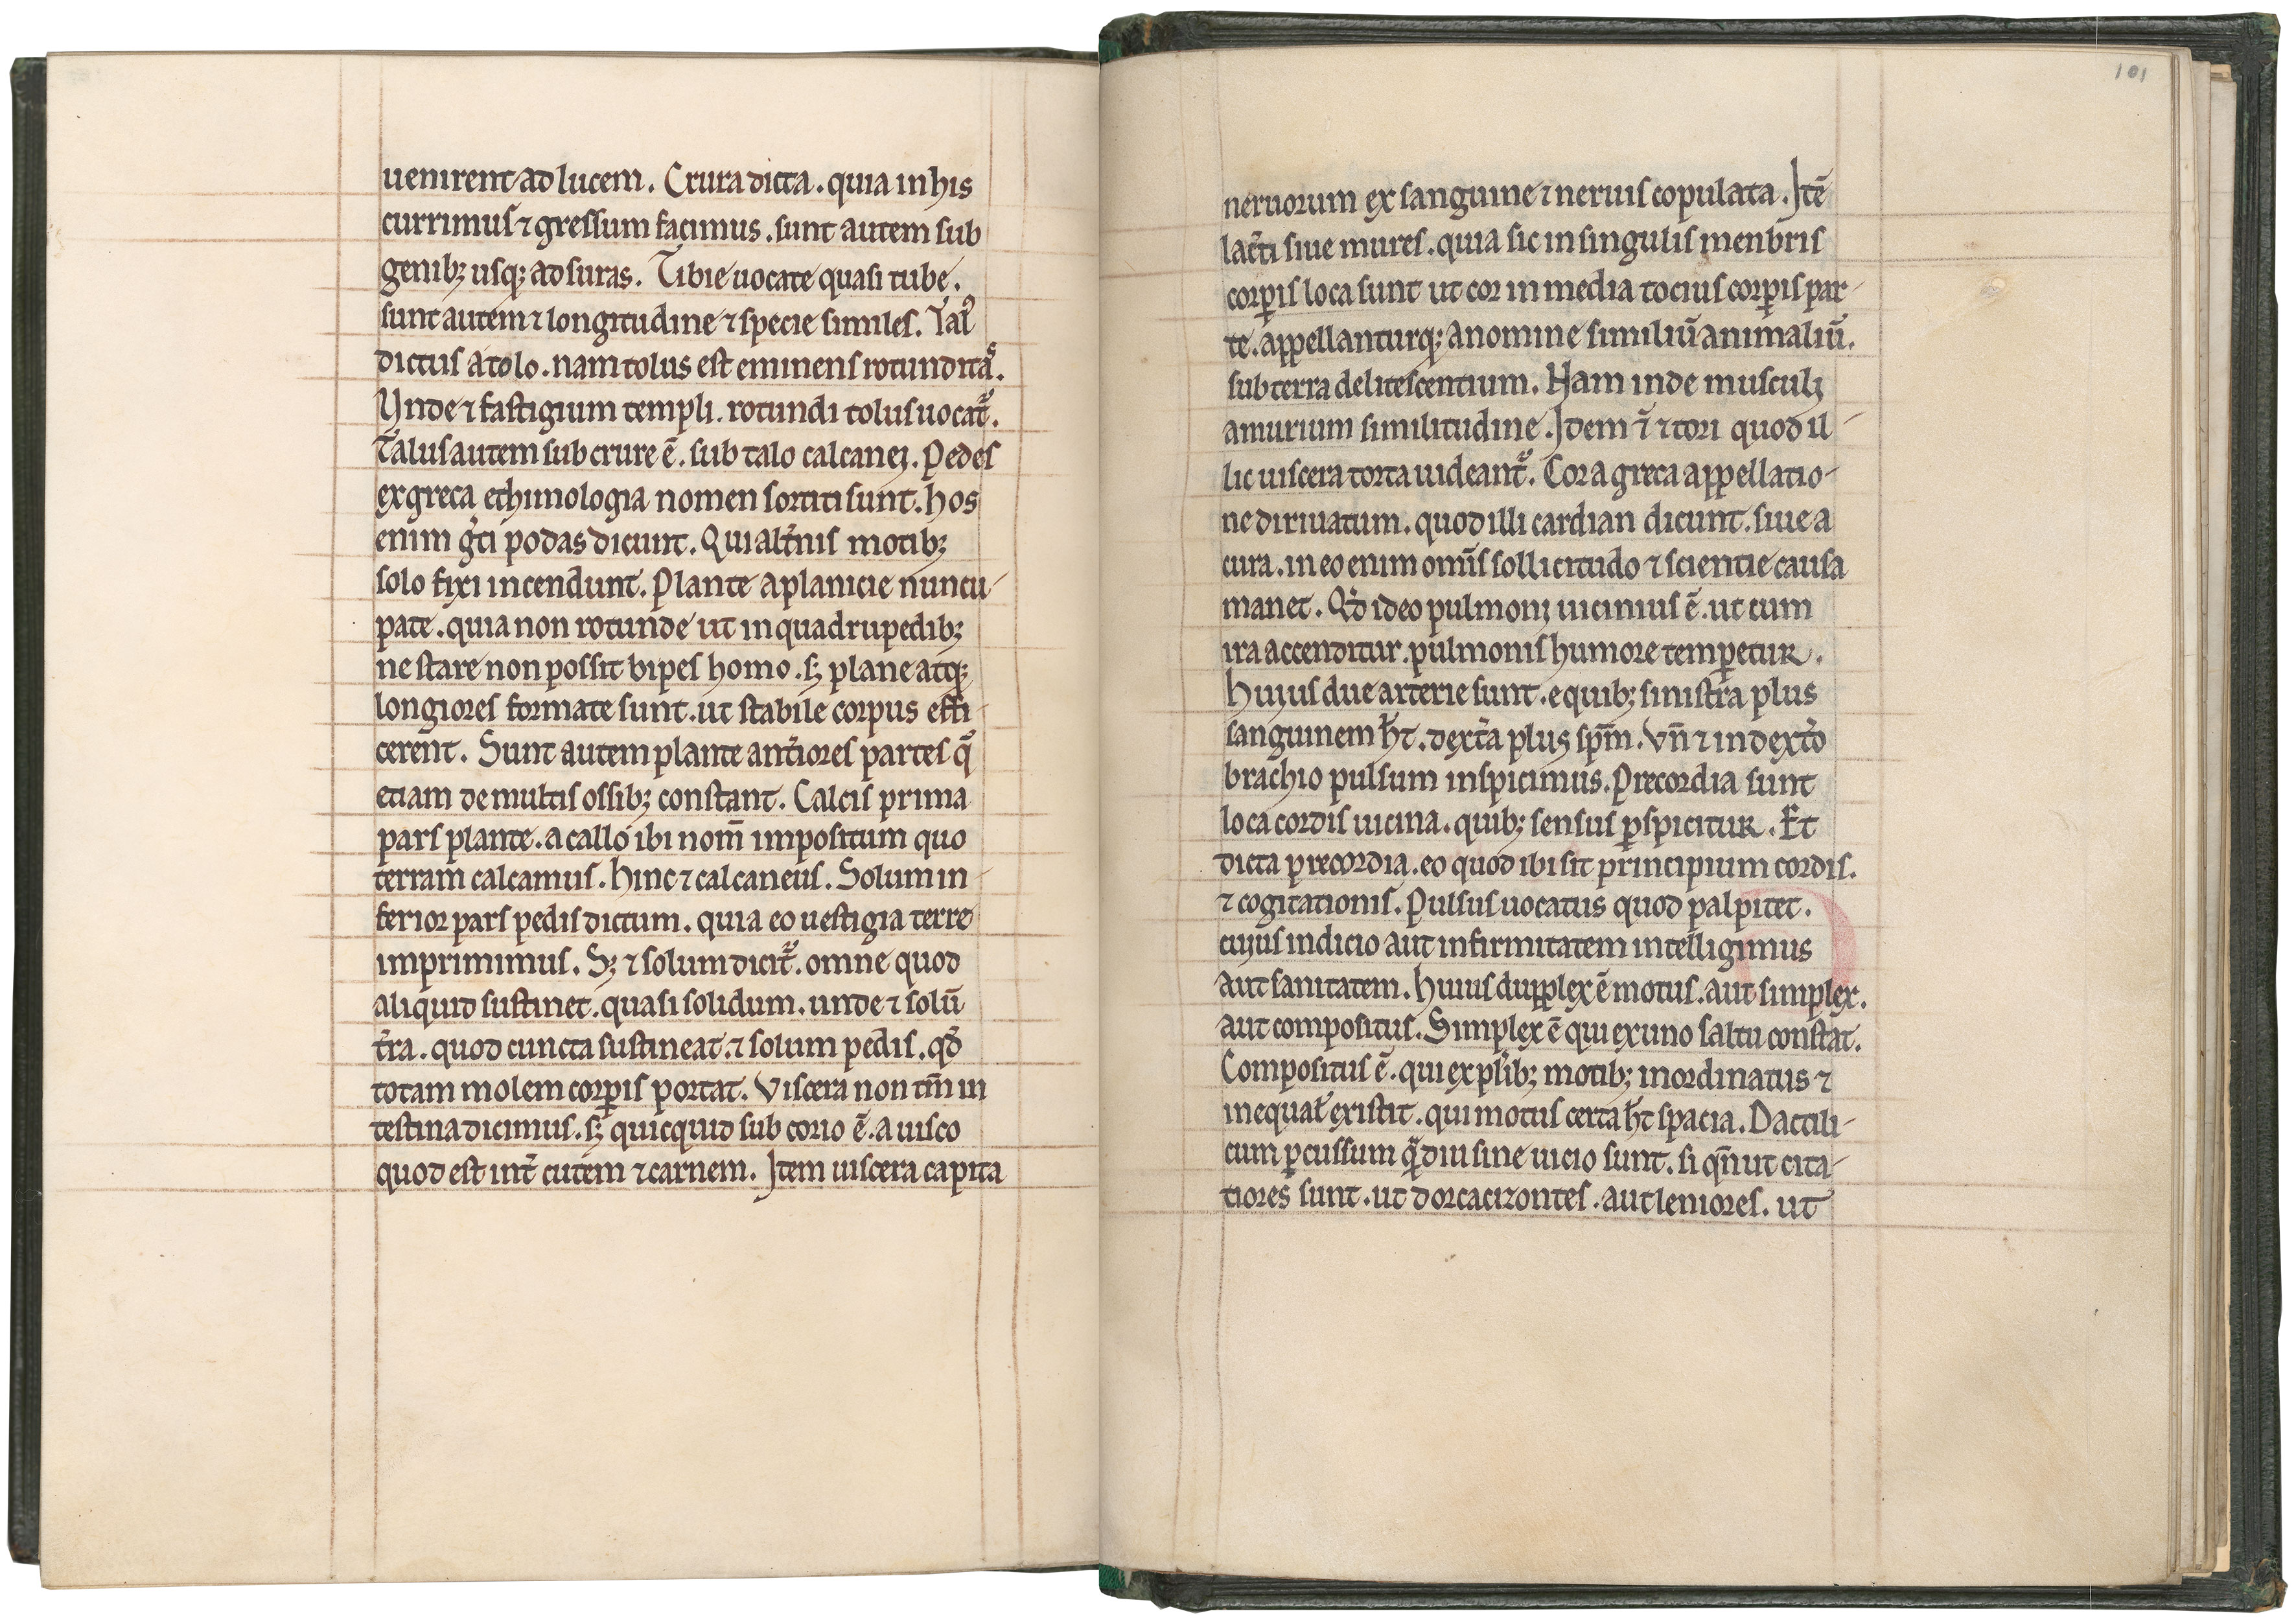 uenirent ad lucem. Crura dicta. quia in his
currimus ⁊ gressum facimus. sunt autem sub
genib; usq; ad suras. Tibie uocate quasi tube.
sunt autem ⁊ longitudine ⁊ specie similes. Tal᷒
dictus a tolo. nam tolus est eminens rotunditaͣ.
Vnde ⁊ fastigium templi rotundi tolus uocat᷑.
Talus autem sub crure ē. sub talo calcanei. Pedes
ex greca ethimologia nomen sortiti sunt. hos
enim gͥci podas dicunt. Qui alt̾nis motib;
solo fixi incendunt. Plante a planicie nuncu-
pate. quia non rotunde ut in quadrupedib;
ne stare non possit bipes homo. s; plane atq;
longiores formate sunt. ut stabile corpus effi-
cerent. Sunt autem plante ant̾iores partes q̃
etiam de multis ossib; constant. Calcis prima
pars plante. a callo ibi nom̄ impositum quo
terram calcamus. hinc ⁊ calcaneus. Solum in-
ferior pars pedis dictum. quia eo uestigia terre
imprimimus. S; ⁊ solum dicit᷑. omne quod
aliquid sustinet. quasi solidum. unde ⁊ solū
t̾ra. quod cuncta sustineat. ⁊ solum pedis. qđ
totam molem corꝑis portat. Viscera non tm̄ in
testina dicimus. s; quicquid sub corio ē. a uisco
quod est int̾ cutem ⁊ carnem. Item uiscera capita
101
neruorum ex sanguine ⁊ neruis copulata. Itē
lac̾ti siue mures. quia sic in singulis menbris
corꝑis loca sunt ut cor in media tocius corꝑis par-
te. appellanturq; a nomine similiū animaliū.
sub terra delitescentium. Nam inde musculi
a murium similitudine. Idem ⁊ tori quod il-
lic uiscera torta uideant᷑. Cor a greca appellatio-
ne diriuatum. quod illi cardian dicunt. siue a
cura. in eo enim om̄is sollicitudo ⁊ scientie causa
manet. Qđ ideo pulmoni uicinus ē. ut cum
ira accenditur. pulmonis humore temꝑetur.
huius due arterie sunt. e quib; sinistra plus
sanguinem ħt. dext̾a plus spm̄. Vn̄ ⁊ in dext̾o
brachio pulsum inspicimus. Precordia sunt
loca cordis uicina. quib; sensus ꝑspicitur. Et
dicta precordia. eo quod ibi sit principium cordis.
⁊ cogitationis. Pulsus uocatus quod palpitet.
cuius indicio aut infirmitatem intelligimus
aut sanitatem. huius dupplex ē motus. aut simplex.
aut compositus. Simplex ē qui ex uno saltu constat.
Compositus ē. qui ex plib; motib; inordinatus ⁊
inequał existit. qui motus certa ħt spacia. Dactili-
cum ꝑcussum qͣdiu sine uicio sunt. si qn̄ ut cita-
tiores sunt. ut dorcacizontes. aut leniores. ut